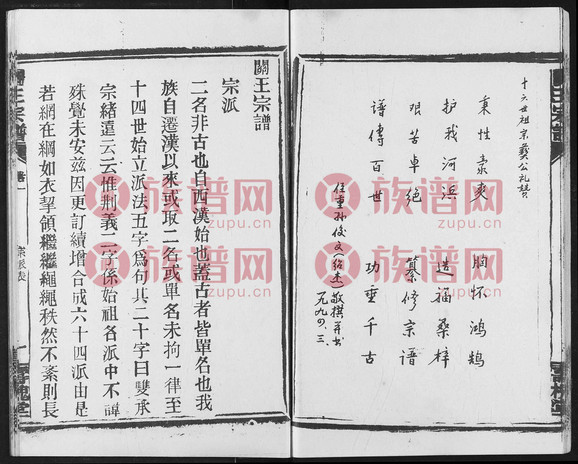 十六世祖宗彝公礼赞
秉性豪爽　胸怀鸿鹄
护我河浜　造福桑梓
艰苦卓绝　纂修宗谱
谱傳百世　功垂千古
任重孙俊文(绍杰)敬撰并书
一九九四.三.
三槐堂
關王宗譜
宗派
二名非古也自西漢始也蓋古者皆單名也我
族自遷漢以來或取二名或單名未拘一律至
十四世始立派法五字爲句共二十字曰雙承
宗緒遠云云惟荆義二字係始祖名派中不諱
殊覺未安兹因更訂續增合成六十四派由是
若網在綱如衣挈領繼繼繩繩秩然不紊則長
王宗譜
卷一
族谱网
zupu.cn
族谱网
zupu.cn
族谱网
zupu.cn
族谱网
zupu.cn